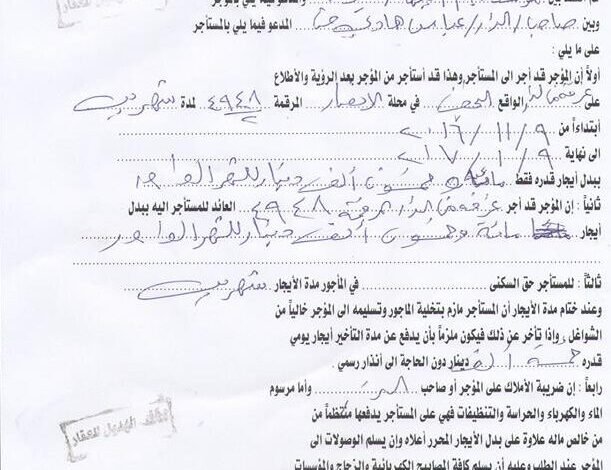 وبين صاحب الدار / عباس هادي المدعو فيما يلي بالمستأجر
على ما يلي :
أولاً إن المؤجر قد أجر الى المستأجر وهذا قد أستأجر من المؤجر بعد الرؤية والأطلاع
على الواقع في محلة الانصار المرقمة ٤٩٤٨ لمدة شهرين
أبتداءاً من ٢٠١٦/١١/٩
الى نهاية ٢٠١٧/١/٩
ببدل أيجار قدره فقط مائة وخمسون ألف دينار للشهر الواحد
ثانياً : إن المؤجر قد أجر غرفة من الدار المرقمة ٤٩٤٨ العائد للمستأجر اليه ببدل
أيجار مائة وخمسون ألف دينار للشهر الواحد
ثالثاً : للمستأجر حق السكنى في المأجور مدة الأيجار شهرين
وعند ختام مدة الأيجار أن المستأجر مازم بتخلية الماجور وتسليمه الى المؤجر خالياً من
الشواغل وإذا تأخر عن ذلك فيكون ملزماً بأن يدفع عن مدة التأخير أيجار يومي
قدره خمسة ألف دينار دون الحاجة الى أنذار رسمي .
رابعاً : إن ضريبة الأملاك على المؤجر أو صاحب وأما مرسوم
الماء والكهرباء والحراسة والتنظيفات فهي على المستأجر يدفعها من
من خالص ماله علاوة على بدل الأيجار المحرر أعلاه وإن يسلم الوصولات الى
المؤجر عند الطلب وعليه أن يسلم كافة المصابيح الكهربائية والزجاج والمؤسسات